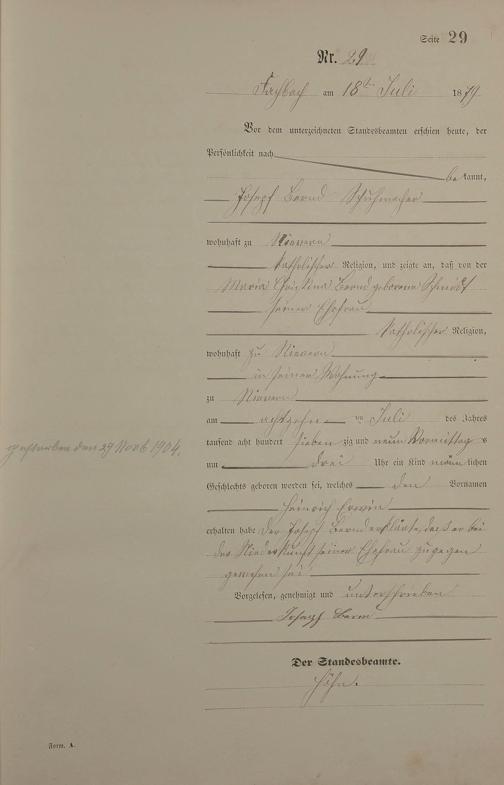 Seite 29
Nr. 29
Fachbach am 18ten Juli 1879
Vor dem unterzeichneten Standesbeamten erschien heute, der
Persönlichkeit nach
be kannt,
Josepf Bernd Schuhmacher
wohnhaft zu Nievern
katholischer Religion, und zeigte an, daß von der
Maria Christina Bernd geborene Schmidt
seiner Ehefrau
katholischer Religion,
wohnhaft zu Nievern
in seiner Wohnung
zu Nievern
am achtzehn ten Juli des Jahres
tausend acht hundert sieben zig und neun Vormittag s
um drei Uhr ein Kind männ lichen
Geschlechts geboren worden sei, welches den Vornamen
Heinrich Erwin
erhalten habe Der Josepf Bernd erklärte, das er bei
der Niederkunft seiner Ehefrau zugegen
gewesen sei
gestorben den 29 Novb 1904.
Vorgelesen, genehmigt und unterschrieben
Josepf Bernd
Der Standesbeamte.
Höhn.
Form. A.